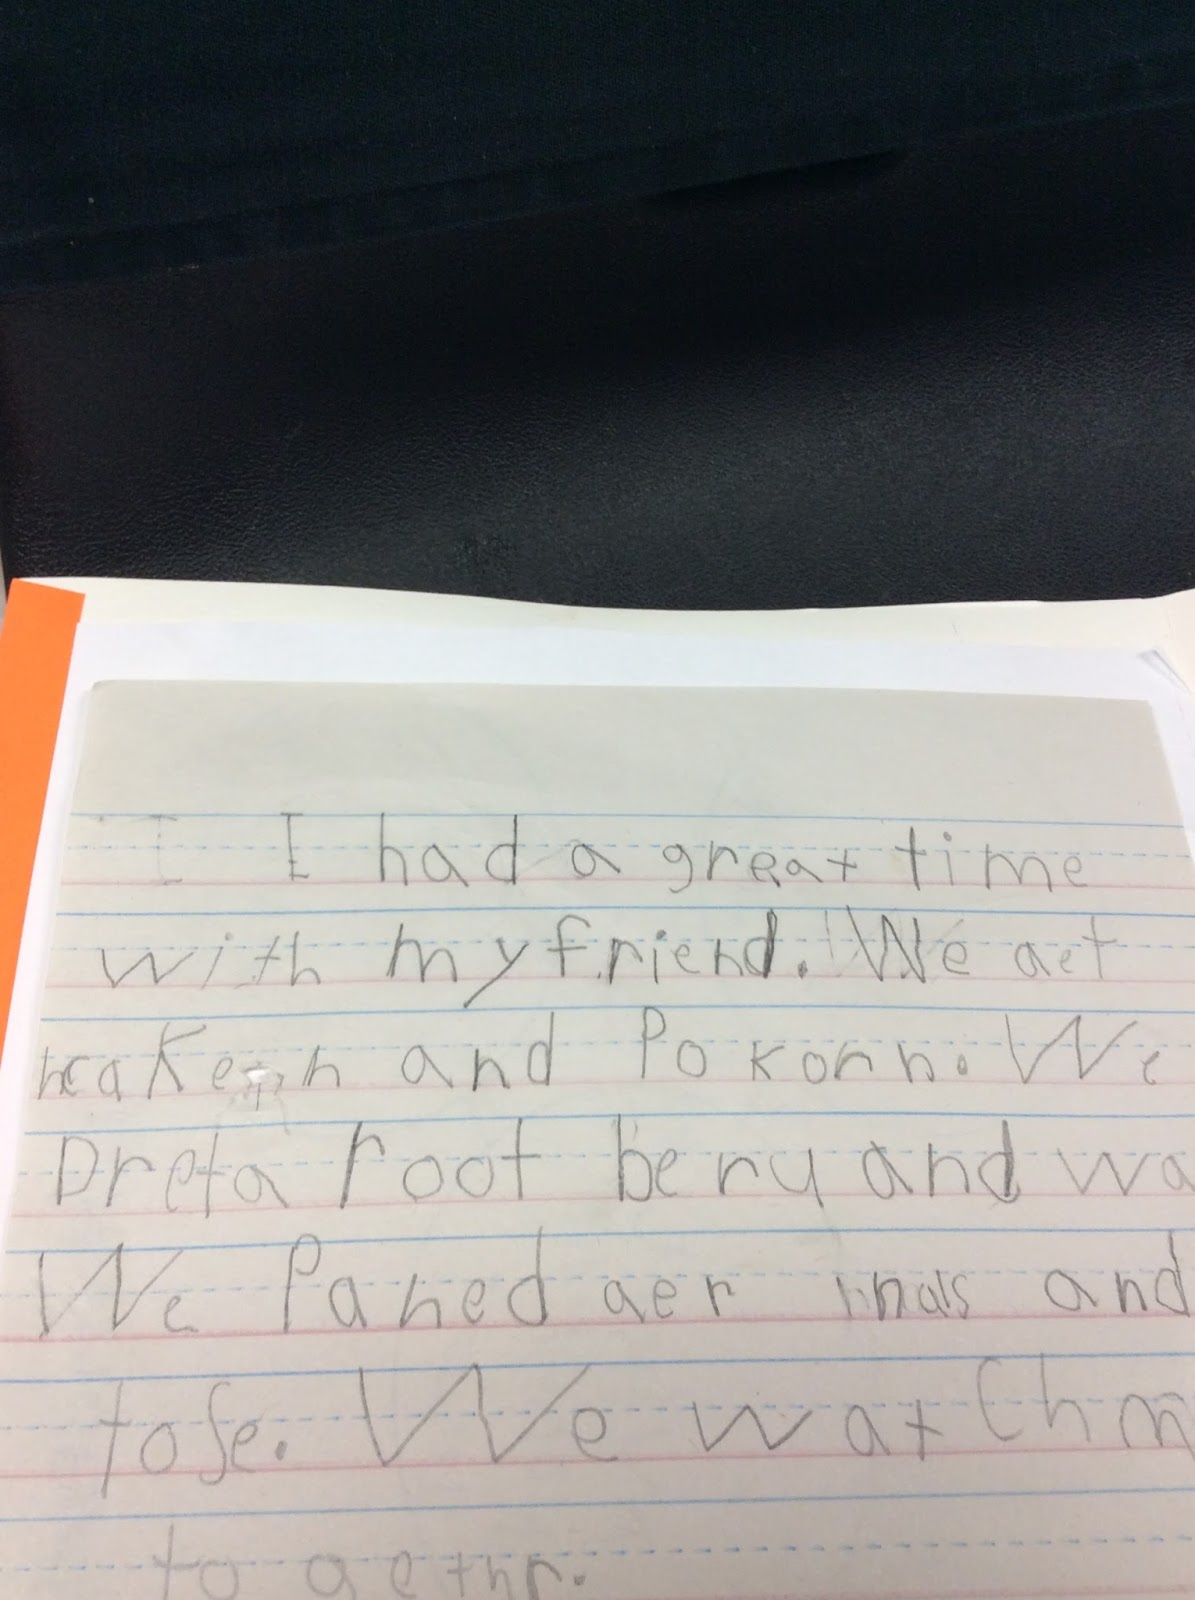 I I had a great time
with my friend. We aet
and Pokonn. We
Dreta root beru and wa
We Paned aer inals and
tose. We watchm
to aethr.